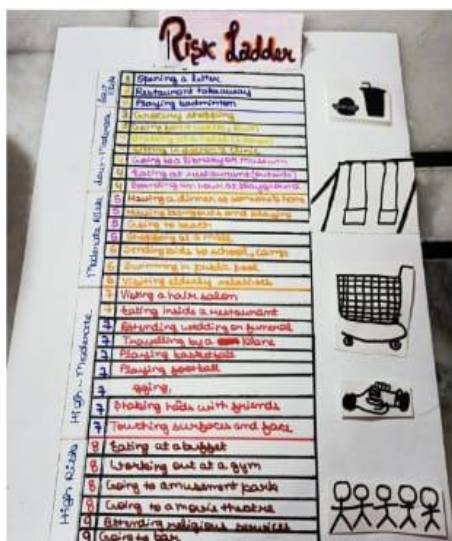 Risk Ladder
Low Risk
1 Opening a letter
Restaurant takeaway
Playing badminton
Low-Moderate
3 Grocery shopping
Going to a library or museum
4 Eating at restaurant (outside)
4 Spending an hour at playground
Moderate Risk
5 Having a dinner at someone's home
5 Having and playing
5 Going to beach
5 Shopping at a mall
6 Sending kids to school, camp
6 Swimming in public pool
6 Visiting elderly relatives
High-Moderate
7 Visiting a hair salon
7 Eating inside a restaurant
7 Attending wedding or funeral
7 Travelling by a Plane
7 Playing basketball
7 Playing football
7 gging,
7 Shaking hands with friends
7 Touching surfaces and face
High Risk
8 Eating at a buffet
8 Working out at a gym
8 Going to amusement park
8 Going to a movie theatre
8 Attending religious services
9 Going to bar